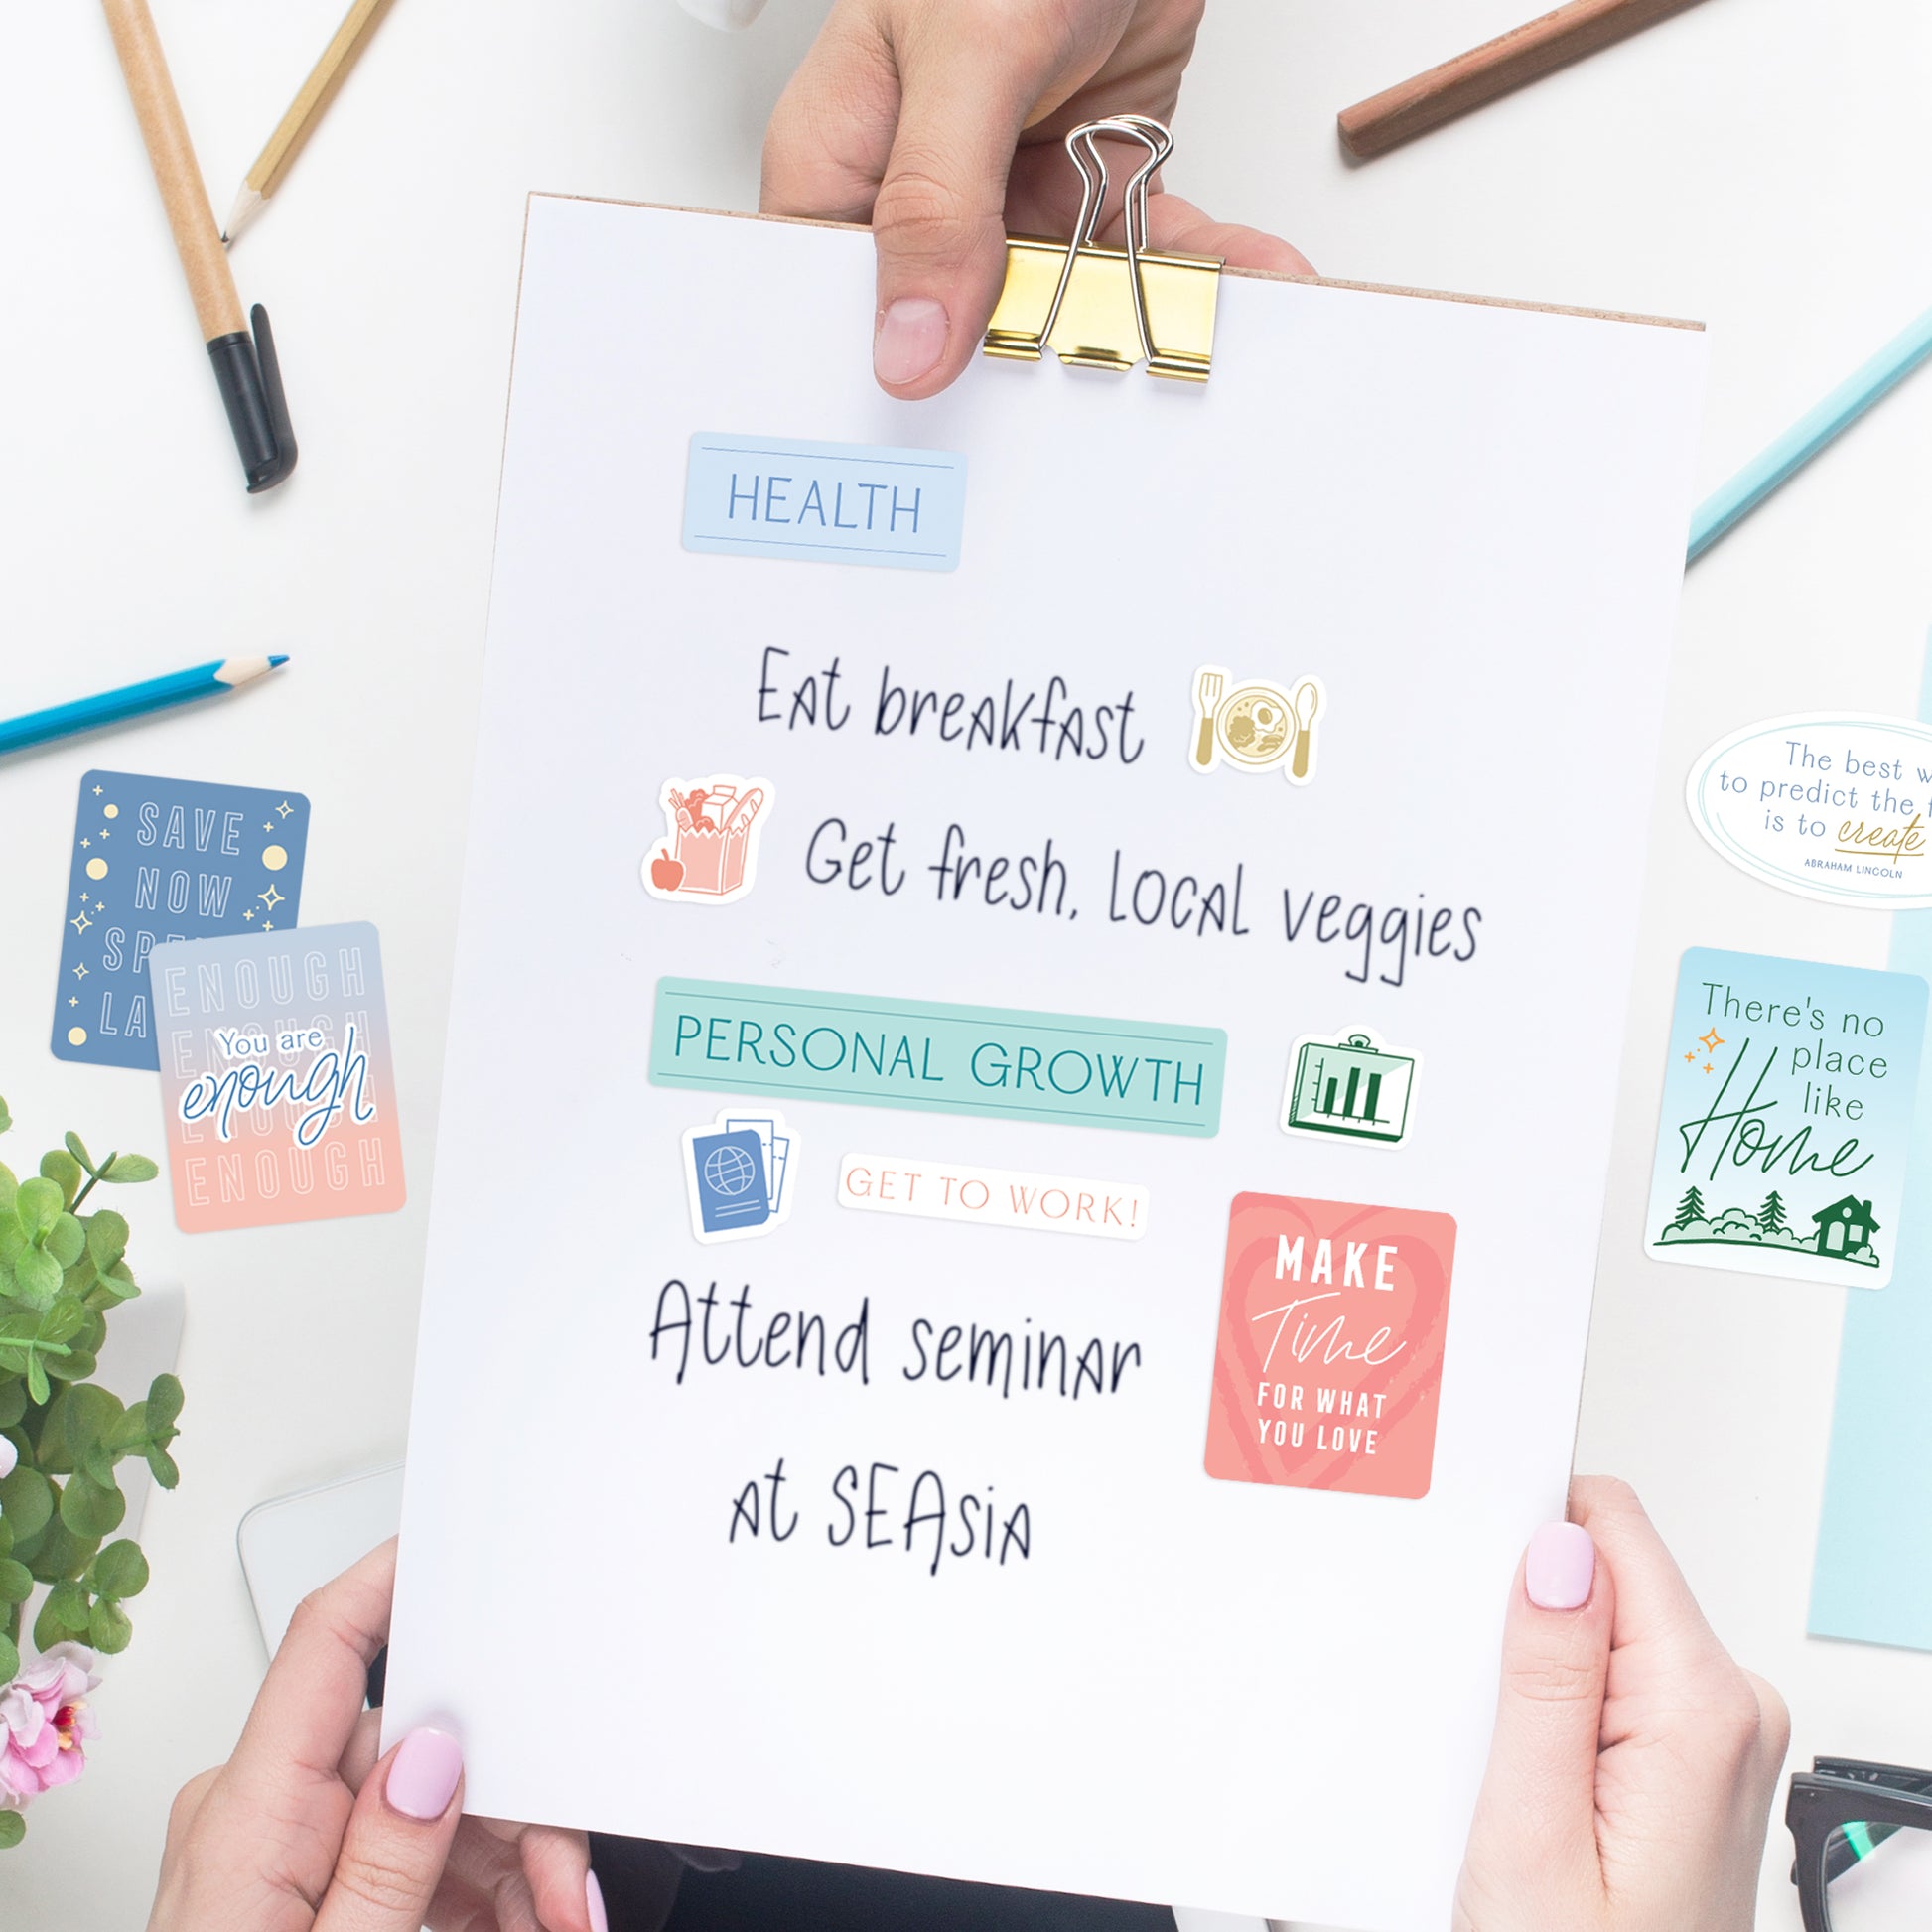 HEALTH
Eat breakfast
Get fresh, local veggies
PERSONAL GROWTH
GET TO WORK!
MAKE
Time
FOR WHAT
YOU LOVE
Attend seminar
at SEAsia
SAVE
NOW
LA
ENOUGH
You are
enough
ENOUGH
The best
to predict the
is to create
ABRAHAM LINCOLN
There's no
place
like
Home